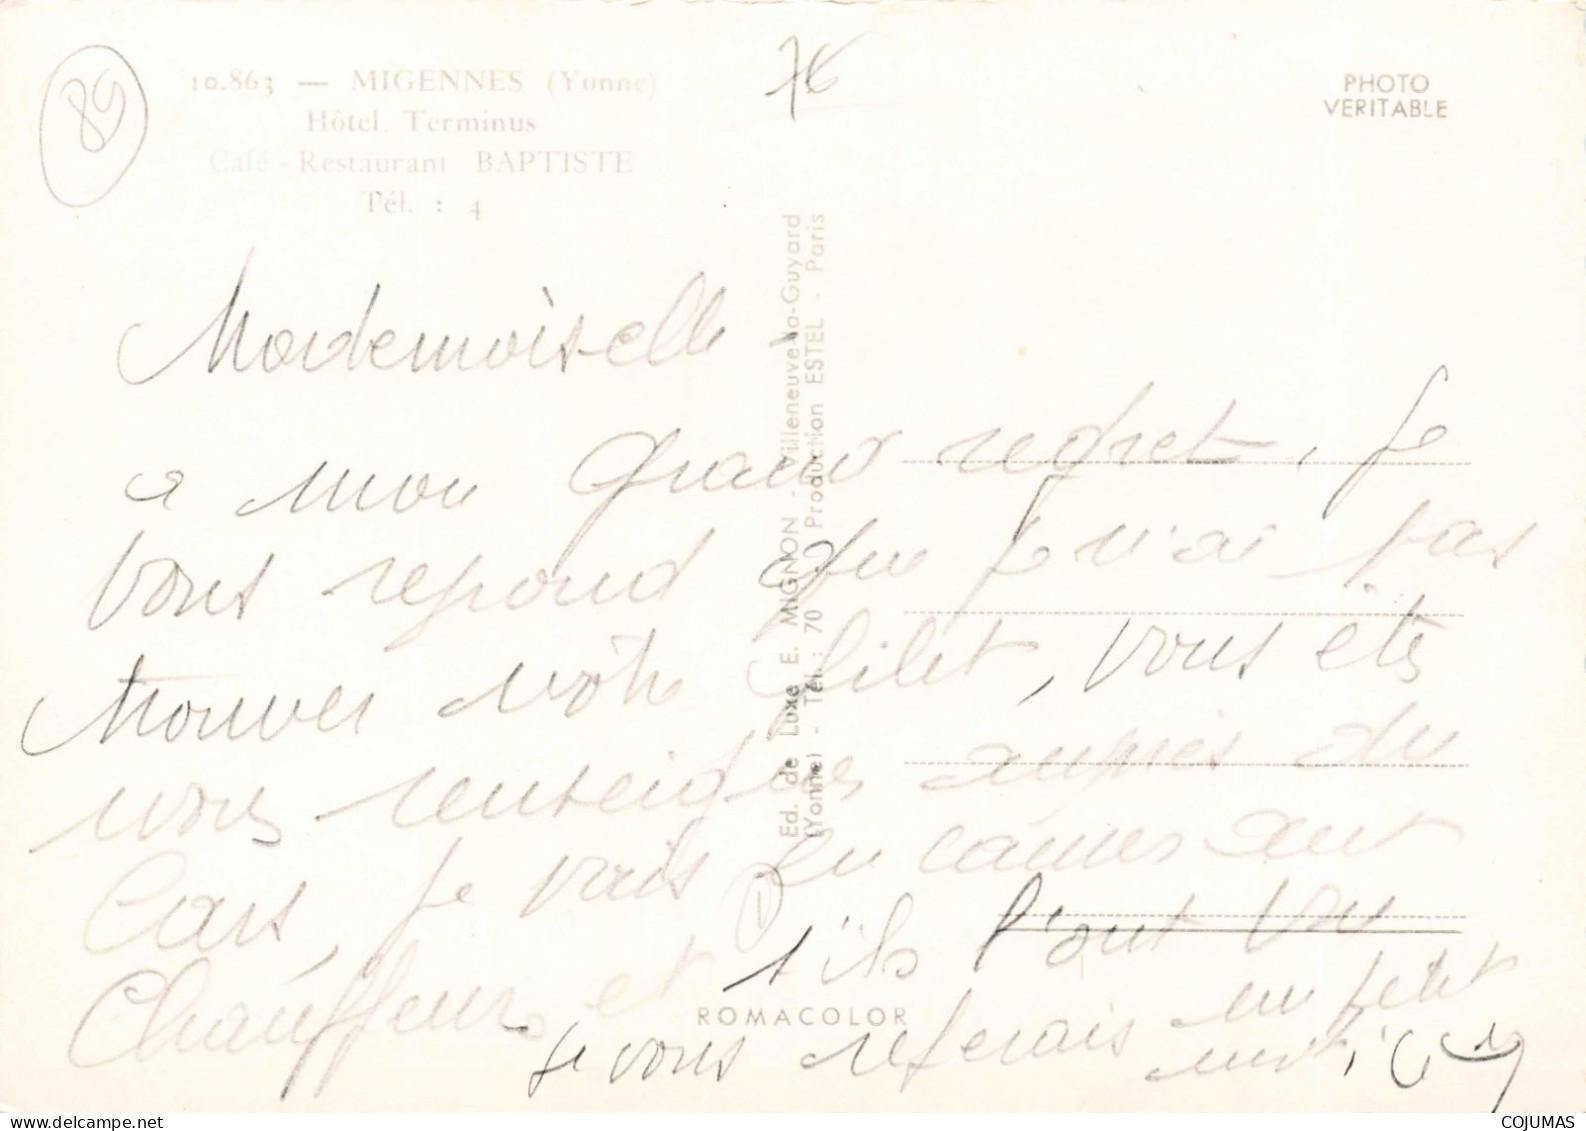 89
10.863 — MIGENNES (Yonne)
Hôtel Terminus
Café - Restaurant BAPTISTE
Tél. : 4
76
PHOTO
VERITABLE
Ed. de Luxe E. MIGNON - Villeneuve-la-Guyard
(Yonne) - Tél. : 70 Production ESTEL - Paris
ROMACOLOR
Mademoiselle -
a mon grand regret, je
vous repond que je n'ai pas
trouver vôtre filet, vous êtes
vous renseigner aupres du
Cars, je vais en causer aux
Chauffeurs et s'ils l'ont vu
je vous referais un petit
mot ici
COJUMAS